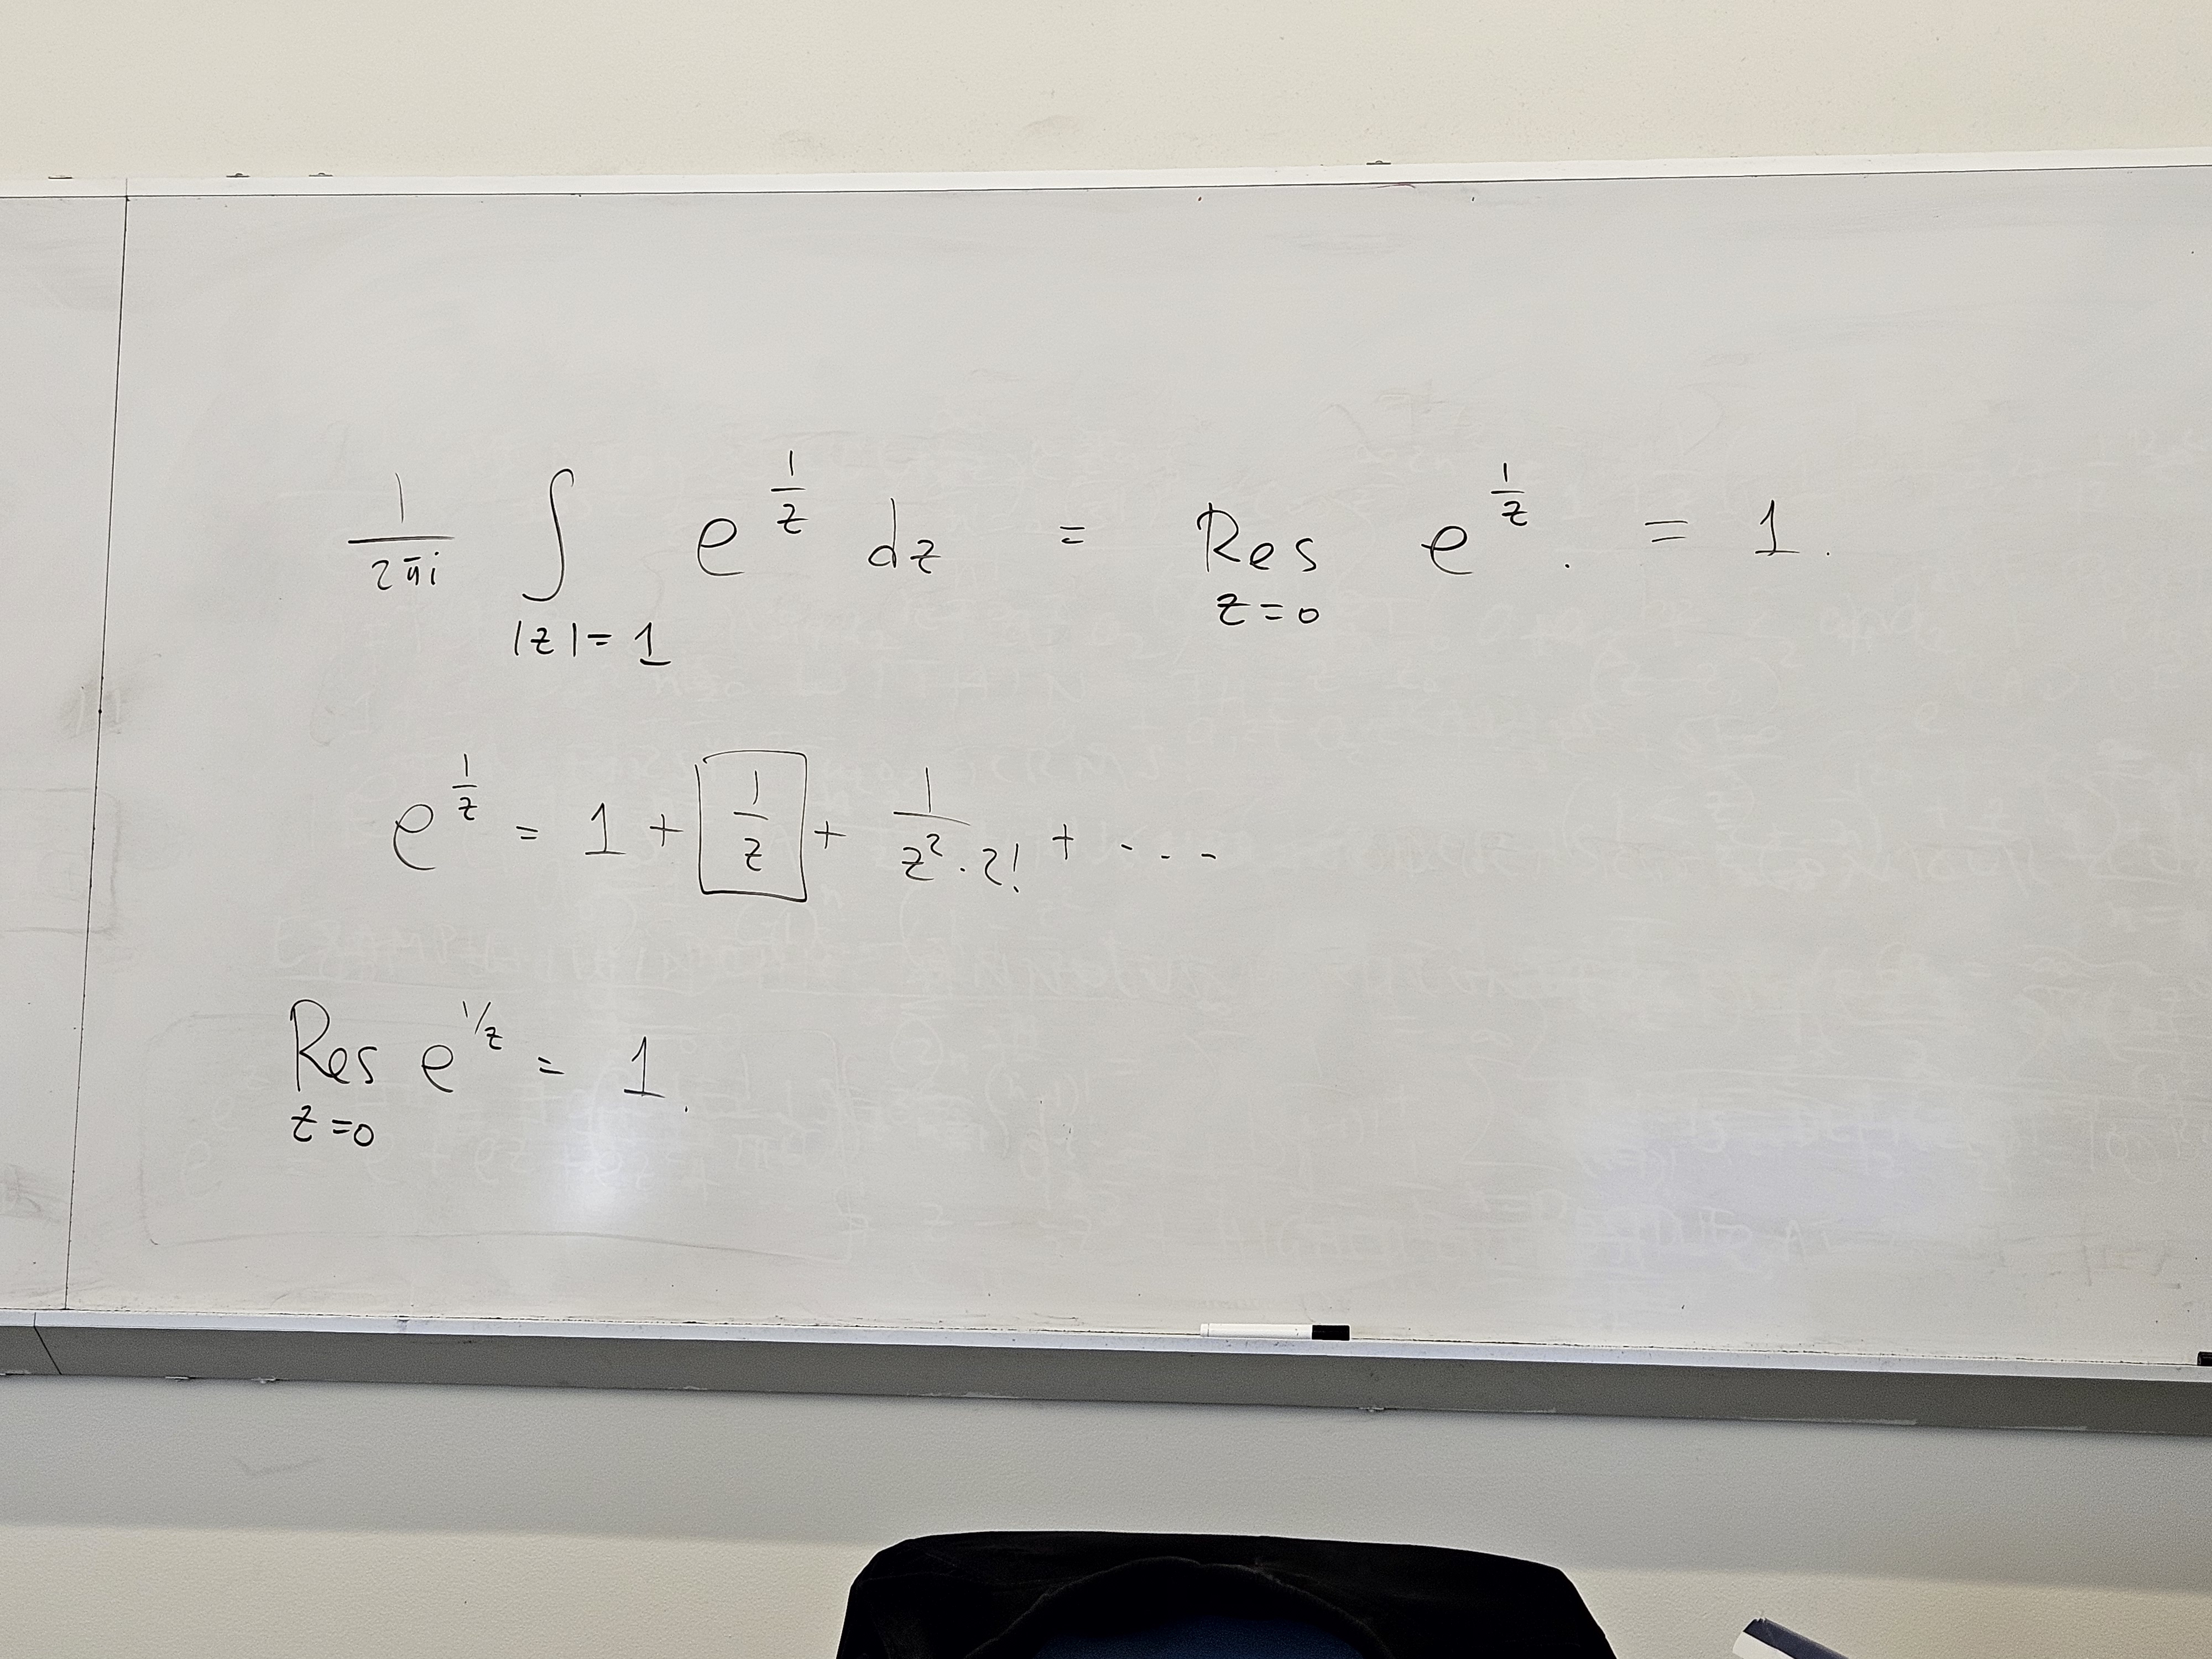 1/(2πi) ∫_{|z|=1} e^{1/z} dz = Res_{z=0} e^{1/z}. = 1.
e^{1/z} = 1 + 1/z + 1/(z²·2!) + ...
Res_{z=0} e^{1/z} = 1.